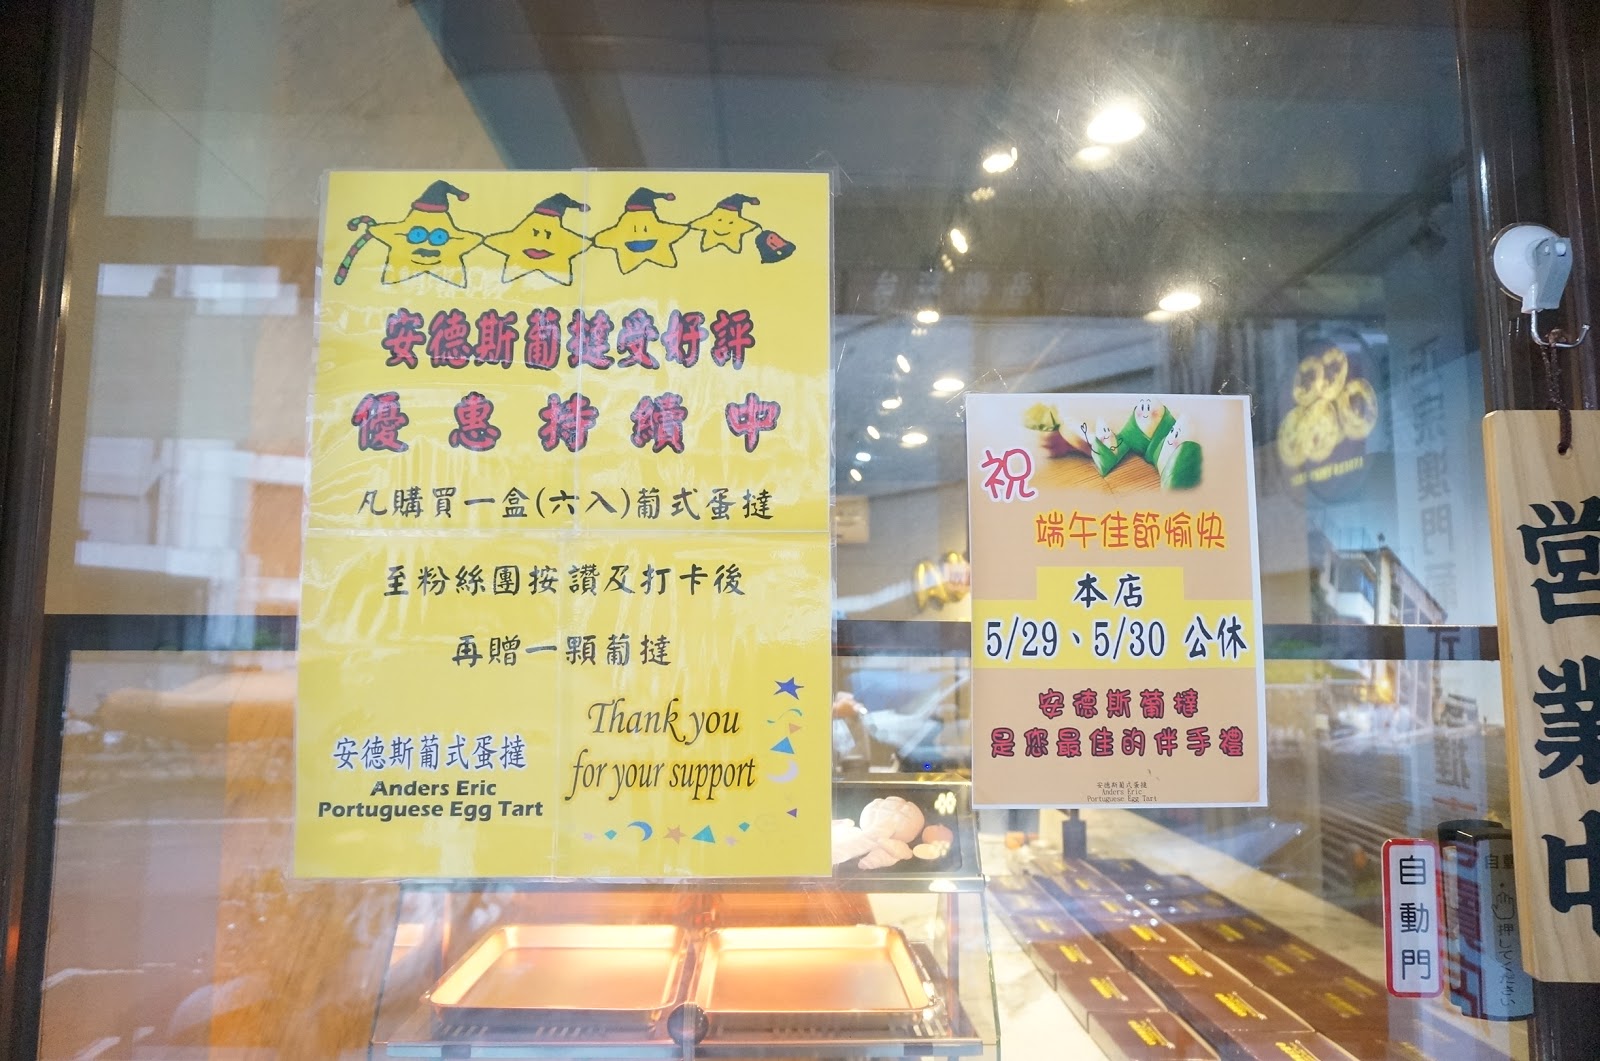 安德斯葡撻受好評
優惠持續中
凡購買一盒(六入)葡式蛋撻
至粉絲團按讚及打卡後
再贈一顆葡撻
Thank you
for your support
安德斯葡式蛋撻
Anders Eric
Portuguese Egg Tart
祝
端午佳節愉快
本店
5/29、5/30 公休
安德斯葡撻
是您最佳的伴手禮
安德斯葡式蛋撻
Anders Eric
Portuguese Egg Tart
営業中
自動門
押してください